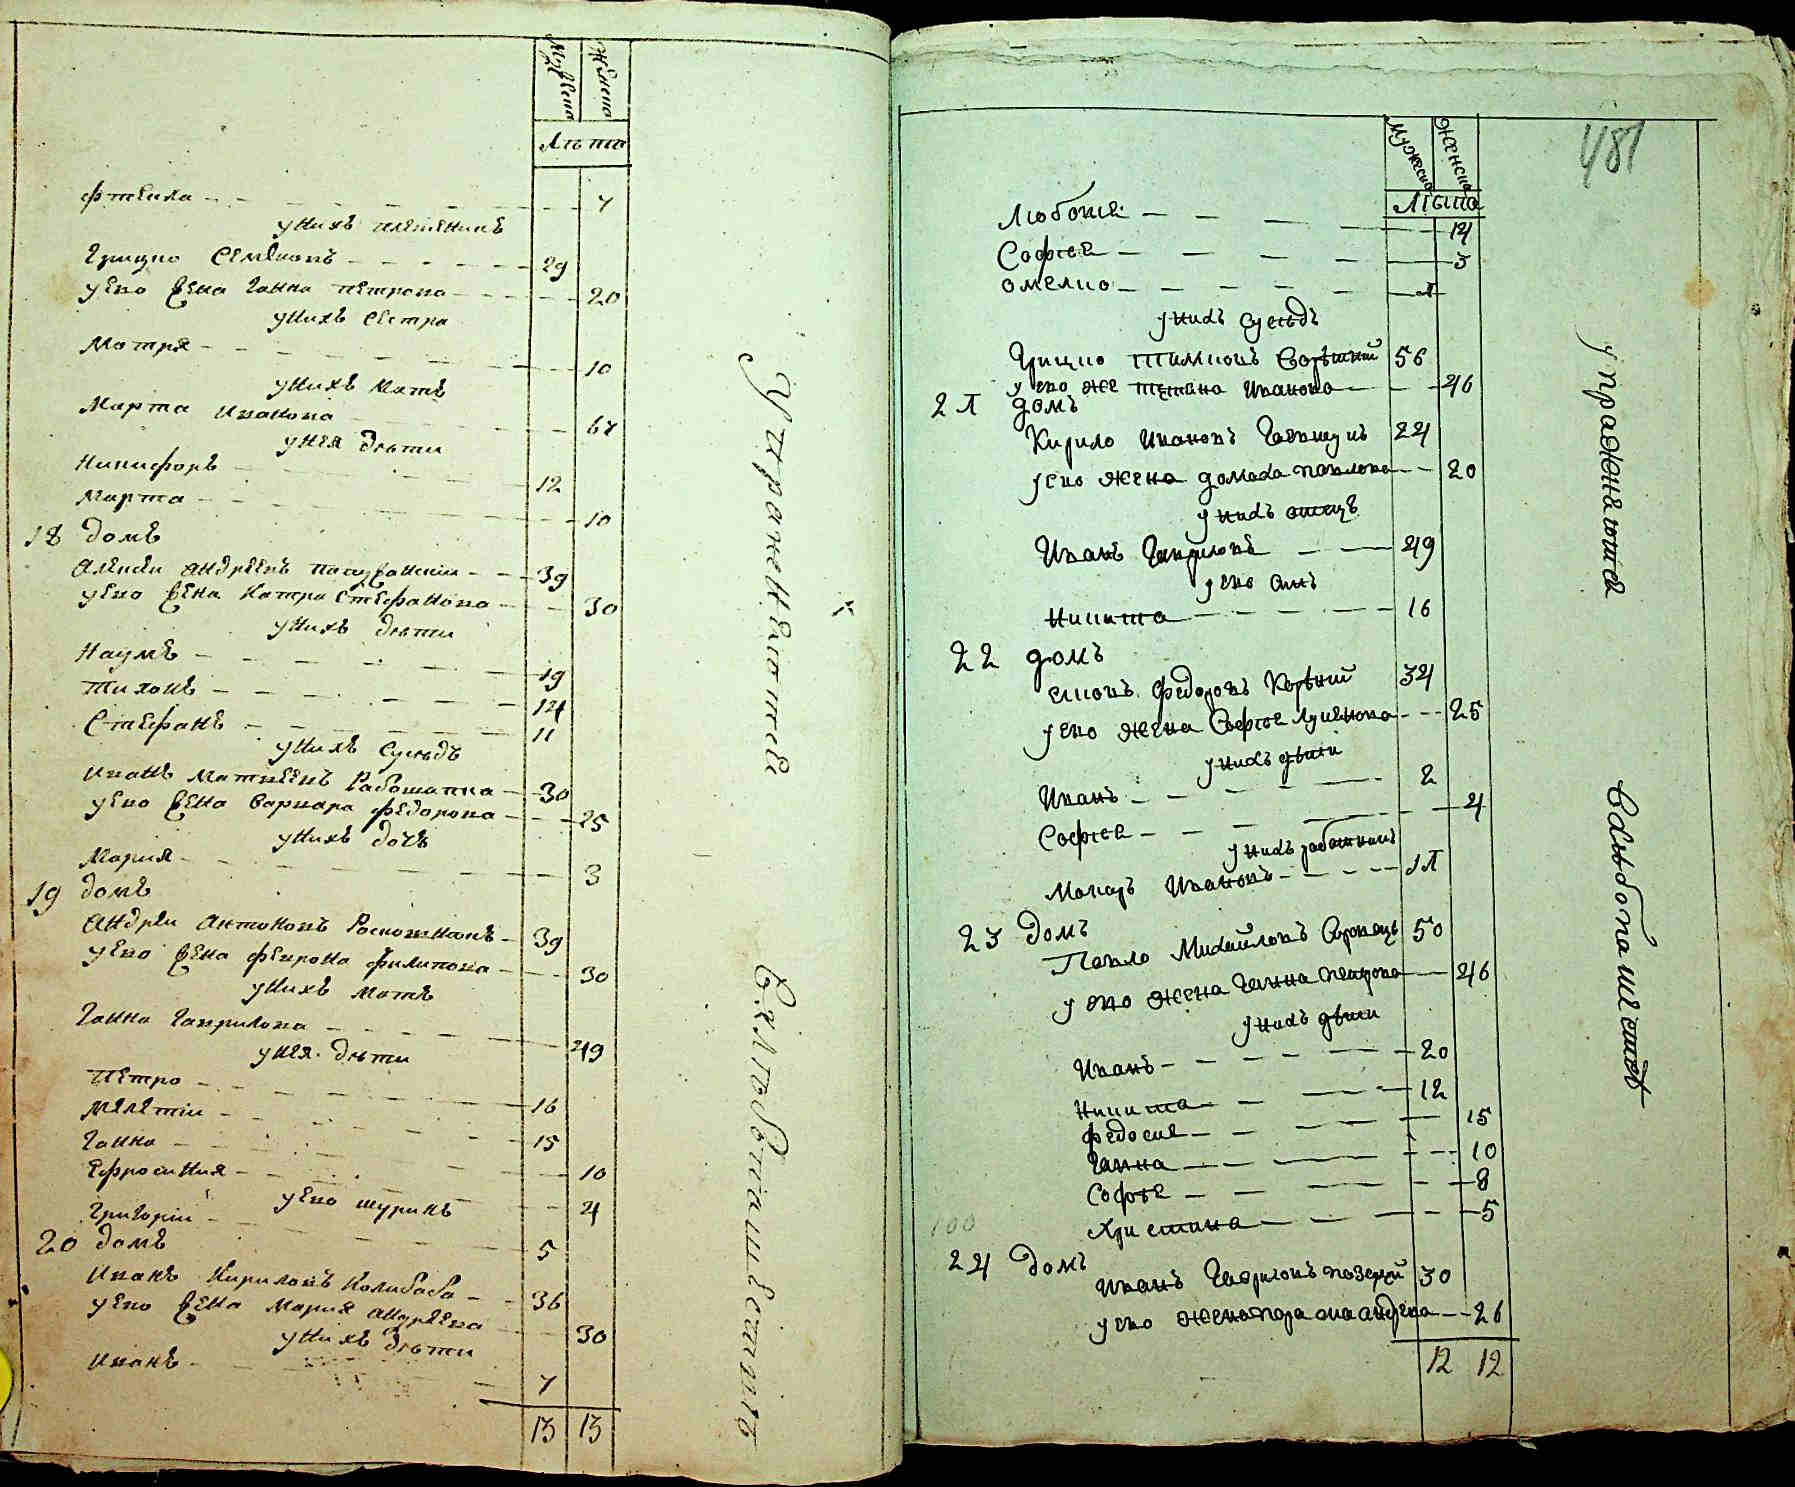 Мужеска
Женска
Лѣта
Фтекла 7
у нихъ племеникъ
Грицко Семеновъ 29
у его жена Ганна Петрова 20
у нихъ сестра
Мотря 10
у нихъ мать
Марта Иванова 67
у нея дѣти
Никифоръ 12
Марта 10
18 домъ
Алексѣи Андреевъ 39
у его жена Катра Стефанова 30
у нихъ дѣти
Наумъ 19
Тихонъ 14
Стефанъ 11
у нихъ сусѣдъ
Иванъ Матвеевъ Рабошапка 30
у его жена Варвара Федорова 25
у нихъ дочь
Мария 3
19 домъ
Андреи Антоновъ 39
у его жена Феврона Филипова 30
у нихъ мать
Ганна Гаврилова 49
у нея дѣти
Петро 16
Мелетіи 15
Ганна 10
Ефросиния 4
у его шуринъ
Григоріи 5
20 домъ
Иванъ Кириловъ Колибаба 36
у его жена Мария Андреева 30
у нихъ дѣти
Иванъ 7
13 13
Упражняются
в хлѣбопашествѣ
481
Мужеска
Женска
Лѣта
Любовия 14
Софiя 3
Омелко
у нихъ сусѣдъ
Грицко Тимковъ 56
у его же Тетяна Иванова 46
21 домъ
Кирило Ивановъ 24
у его жена Домаха Павлова 20
у нихъ отецъ
Иванъ Гавриловъ 49
у его синъ
Никита 16
22 домъ
Федоровъ 34
у его жена Софiя 25
у нихъ дѣти
Иванъ 2
Софiя 4
у нихъ работникъ
Ивановъ 11
23 домъ
Павло Михайловъ 50
у его жена Ганна Петрова 46
у нихъ дѣти
Иванъ 20
Никита 12
Федосия 15
Ганна 10
Софiя 8
Христина 5
100
24 домъ
Иванъ Гавриловъ 30
у его жена 26
12 12
упражняются
в хлѣбопашествѣ